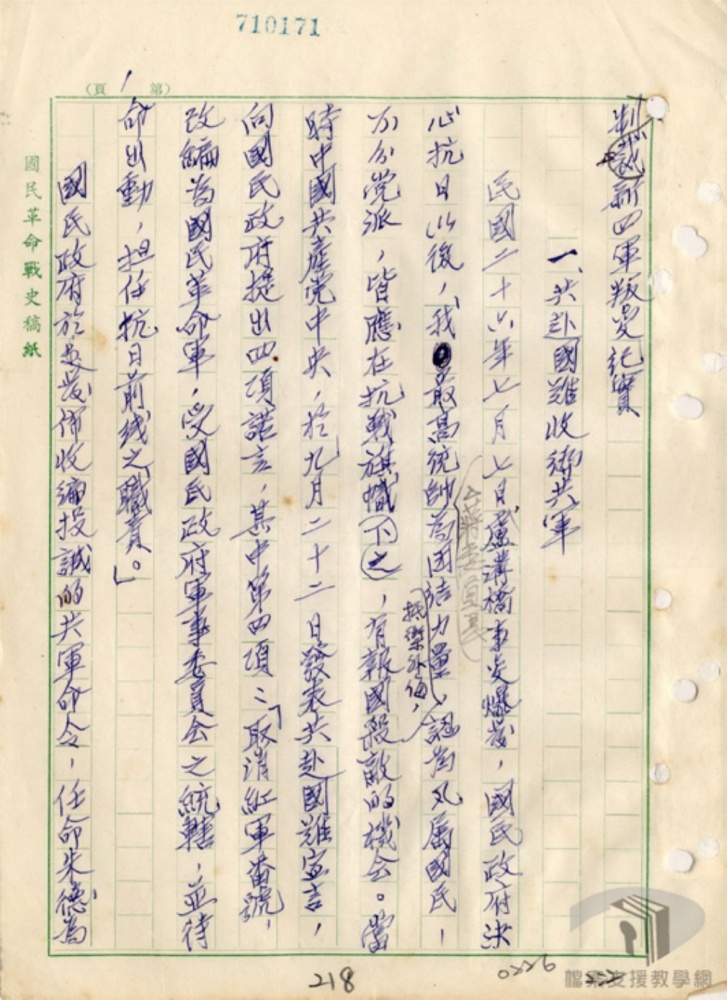 710171
(頁 1 第)
制裁新四軍叛變紀實
一、共赴國難收編共軍
民國二十六年七月七日盧溝橋事变爆發，國民政府决
心抗日以後，我最高統帥为团结力量、認为凡属國民，
(蔣委員長)
抵禦外侮，
不分党派，皆應在抗戰旗幟下之，有報國殺敵的機会。當
時中國共產党中央，於九月二十二日發表共赴國難宣言，
向國民政府提出四項諾言，其中第四項：「取消紅軍番號，
改編為國民革命軍，受國民政府軍事委員会之統轄，並待
命出動，担任抗日前线之職責。」
國民政府於是發佈收編投誠的共軍命令，任命朱德為
國民革命戰史稿紙
218
0226
檔案支援教學網